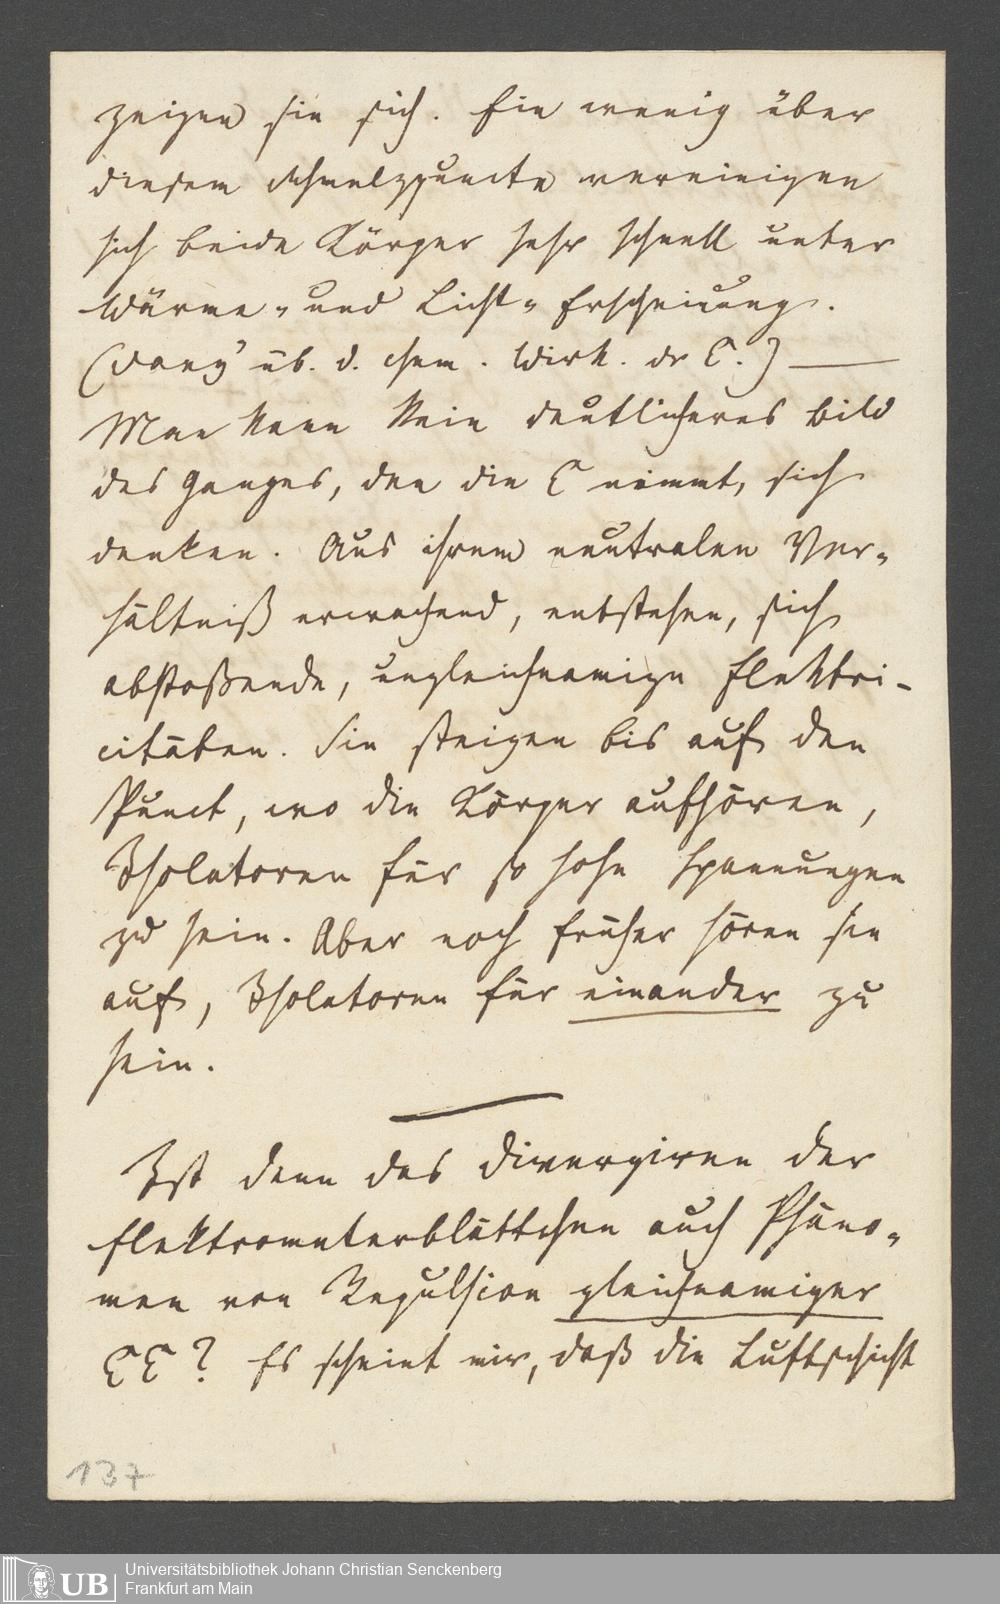 zeigen sie sich. Ein wenig über
diesem Schmelzpuncte vereinigen
sich beide Körper sehr schnell unter
Wärme- und Licht-Erscheinung.
(Davy üb. d. chem. Wirk. dr E.) —
Man kann kein deutlicheres Bild
des Ganges, den die E nimmt, sich
denken. Aus ihrem neutralen Ver-
hältniß erwachend, entstehen, sich
abstoßende, ungleichnamige Elektri-
citäten. Sie steigen bis auf den
Punct, wo die Körper aufhören,
Isolatoren für so hohe Spannungen
zu sein. Aber noch früher hören sie
auf, Isolatoren für einander zu
sein.
Ist denn das Divergiren der
Elektrometerblättchen auch Phäno-
men von Repulsion gleichnamiger
EE? Es scheint mir, daß die Luftschicht
137
UB Universitätsbibliothek Johann Christian Senckenberg
Frankfurt am Main